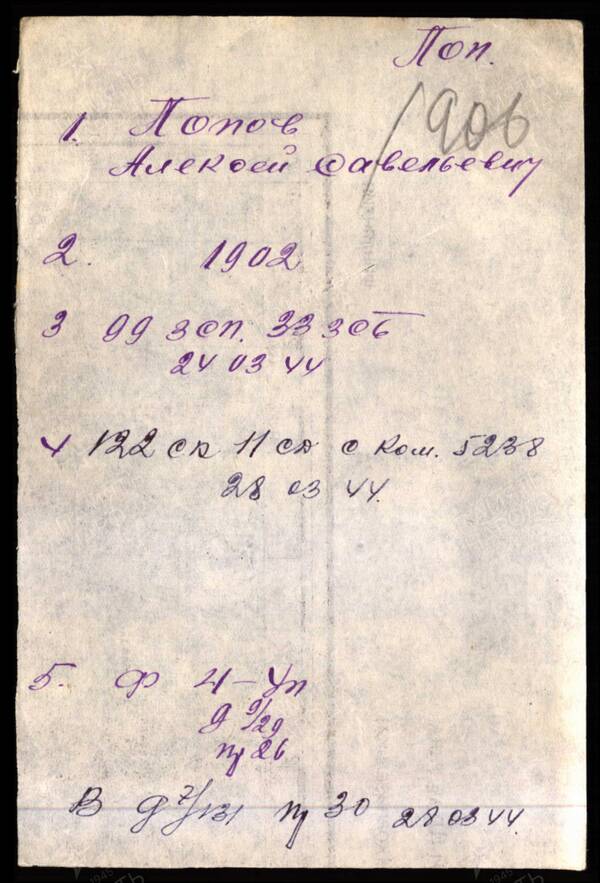 Поп.
1906
1. Попов
Алексей Савельевич
2. 1902
3 99 зсп. 33 зсб
24 03 44
4 122 ск 11 сд с ком. 5238
28 03 44.
5. Ф 4-Уп
д 9/29
пр 26
В д 7/131 пр 30 28 03 44.